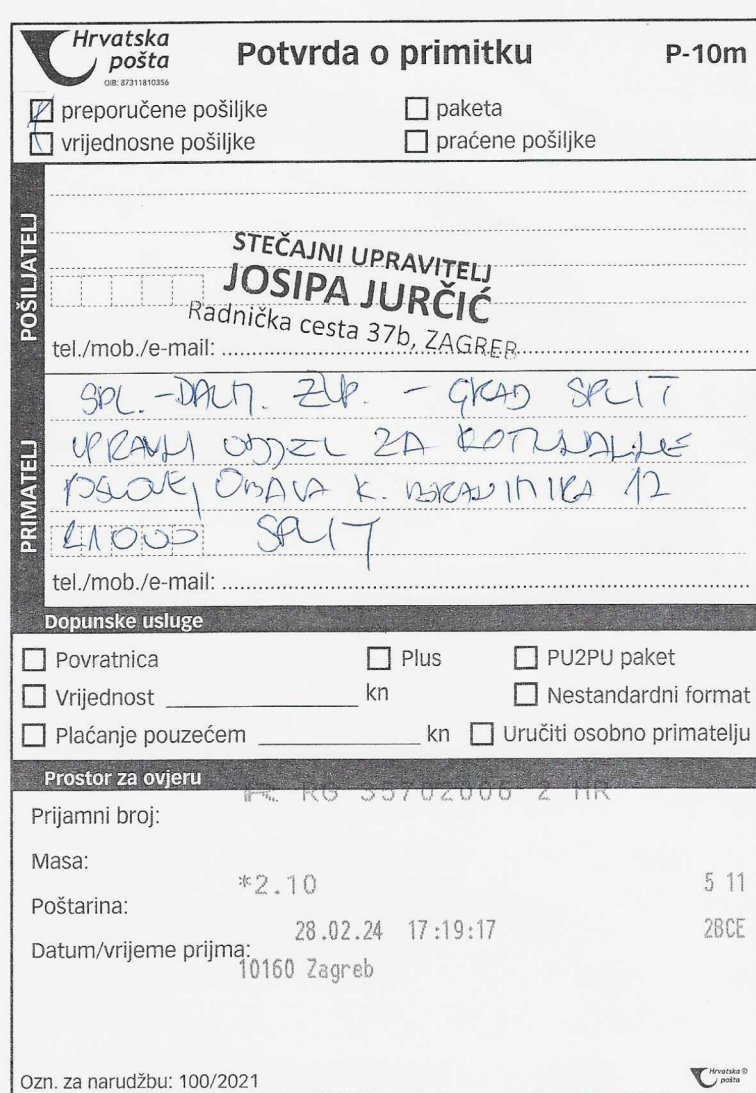 Hrvatska pošta
OIB: 87311810356
Potvrda o primitku
P-10m
preporučene pošiljke
paketa
vrijednosne pošiljke
praćene pošiljke
POŠILJATELJ
STEČAJNI UPRAVITELJ
JOSIPA JURČIĆ
Radnička cesta 37b, ZAGREB
tel./mob./e-mail:
PRIMATELJ
SPL.-DALM. ŽUP. - GRAD SPLIT
UPRAVNI ODJEL ZA KOMUNALNE
POSLOVE, OBALA K. BRANIMIRA 12
21000 SPLIT
tel./mob./e-mail:
Dopunske usluge
Povratnica
Plus
PU2PU paket
Vrijednost kn
Nestandardni format
Plaćanje pouzećem kn
Uručiti osobno primatelju
Prostor za ovjeru
RG 35702006 2 HR
Prijamni broj:
Masa:
*2.10 5 11
Poštarina:
28.02.24 17:19:17 2BCE
Datum/vrijeme prijma:
10160 Zagreb
Ozn. za narudžbu: 100/2021
Hrvatska pošta